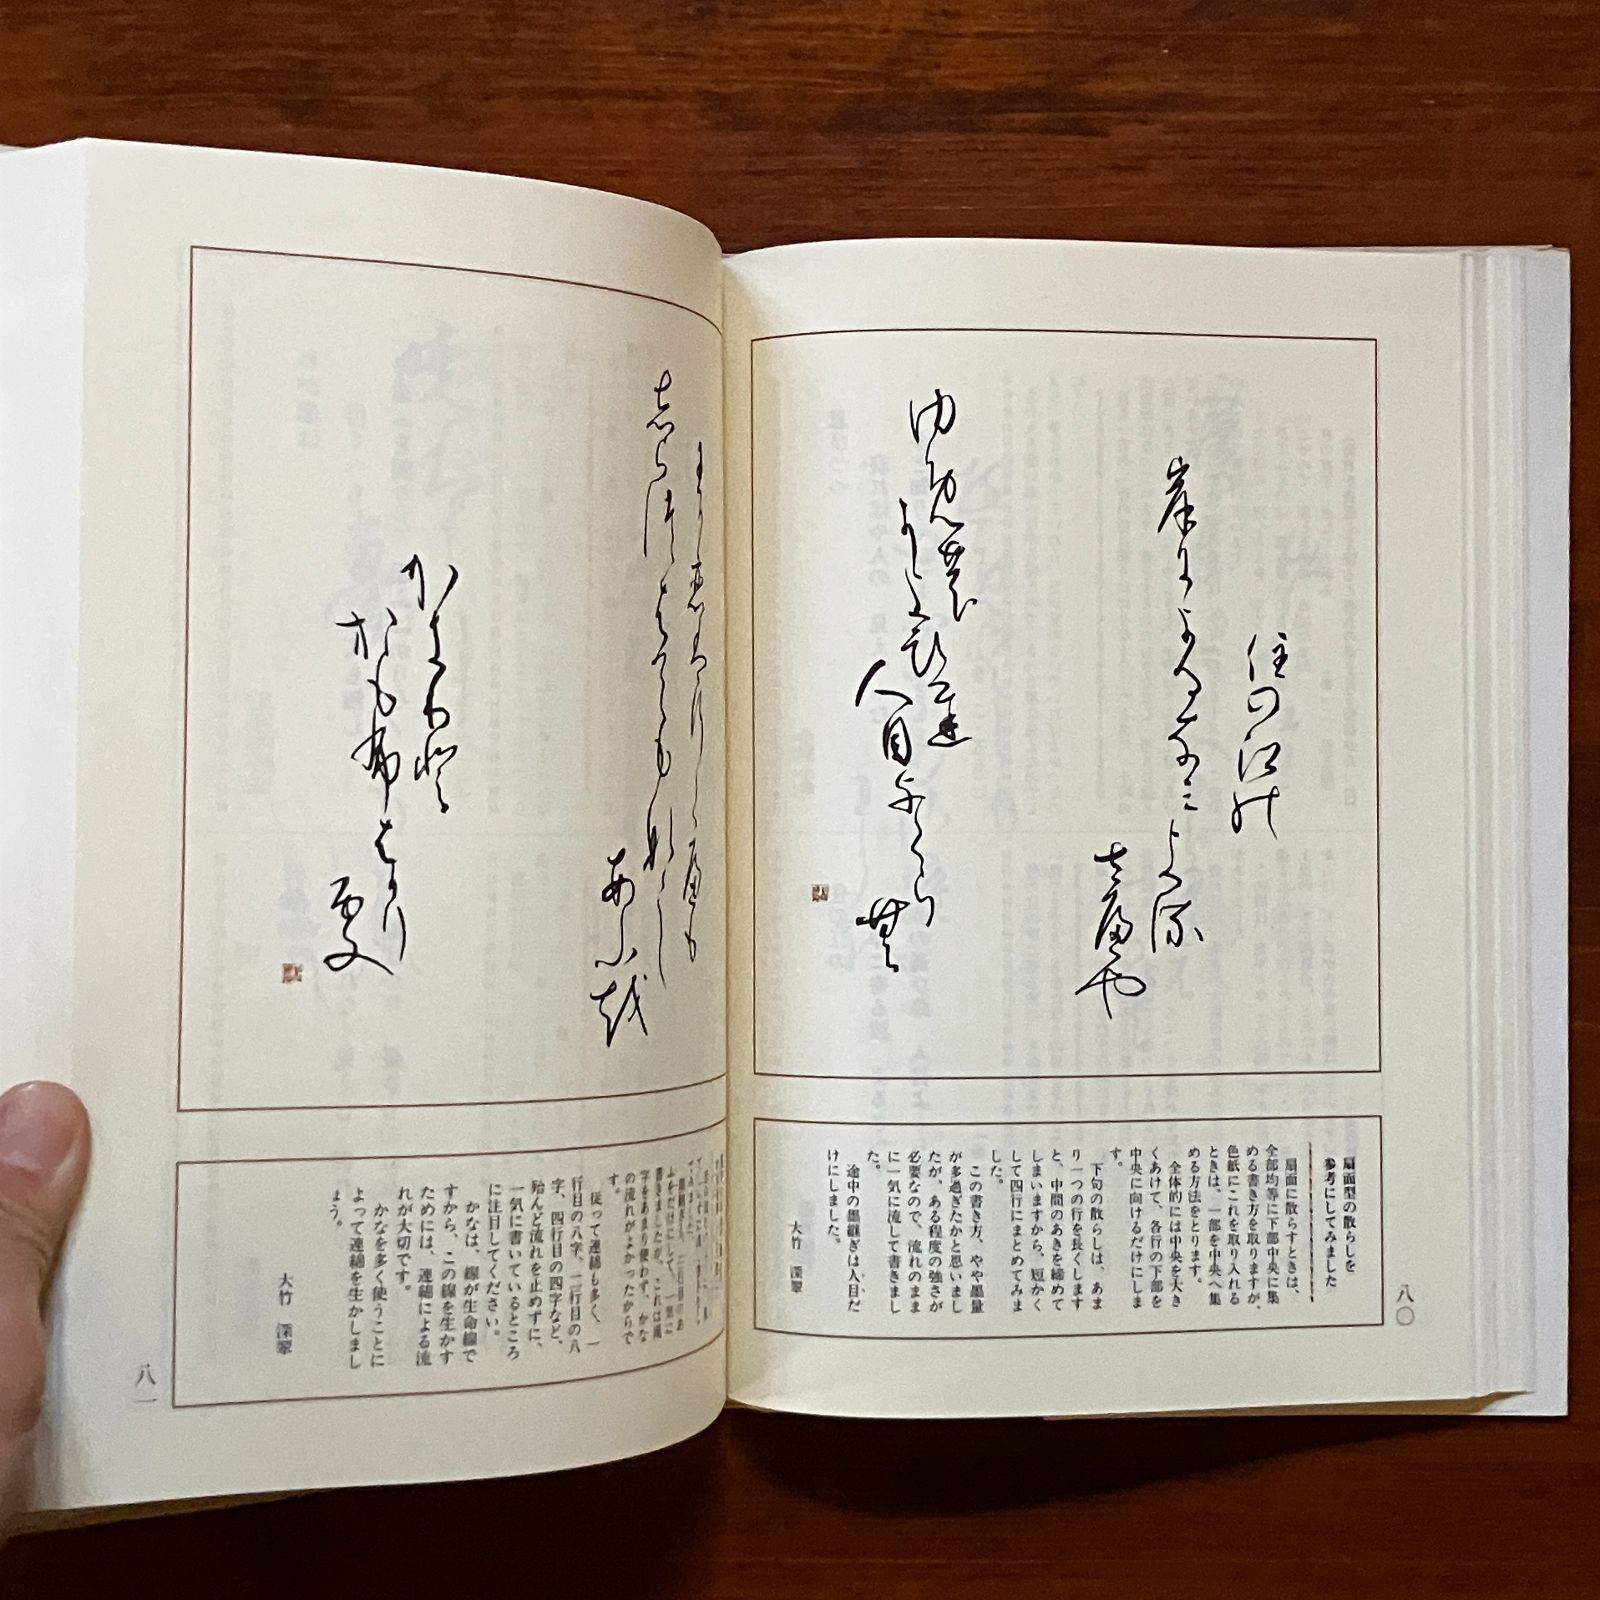 住の江能
岸によるな三よる
左遍や
人目よくらむ
扇面型の散らしを
参考にしてみました
扇面に散らすときは、
全部均等に下部中央に集
める書き方を取りますが、
色紙にこれを取り入れる
ときは、一部を中央へ集
める方法をとります。
全体的には中央を大き
くあけて、各行の下部を
中央に向けるだけにしま
す。
下句の散らしは、あま
り一つの行を長くします
と、中間のあきを締めて
しまいますから、短かく
して四行にまとめてみま
した。
この書き方、やや墨量
が多過ぎたかと思いまし
たが、ある程度の強さが
必要なので、流れのまま
に一気に流して書きまし
た。
途中の墨継ぎは人目だ
けにしました。
大竹 深翠
八〇
志ら須はてもなし
あふ越
かきり登
おも布はかり
字をあまり使わず、かな
の流れがよかったからで
す。
従って連綿も多く、一
行目の八字、二行目の八
字、四行目の四字など、
殆んど流れを止めずに、
一気に書いているところ
に注目してください。
かなは、線が生命線で
すから、この線を生かす
ためには、連綿による流
れが大切です。
かなを多く使うことに
よって連綿を生かしまし
ょう。
大竹 深翠
八一